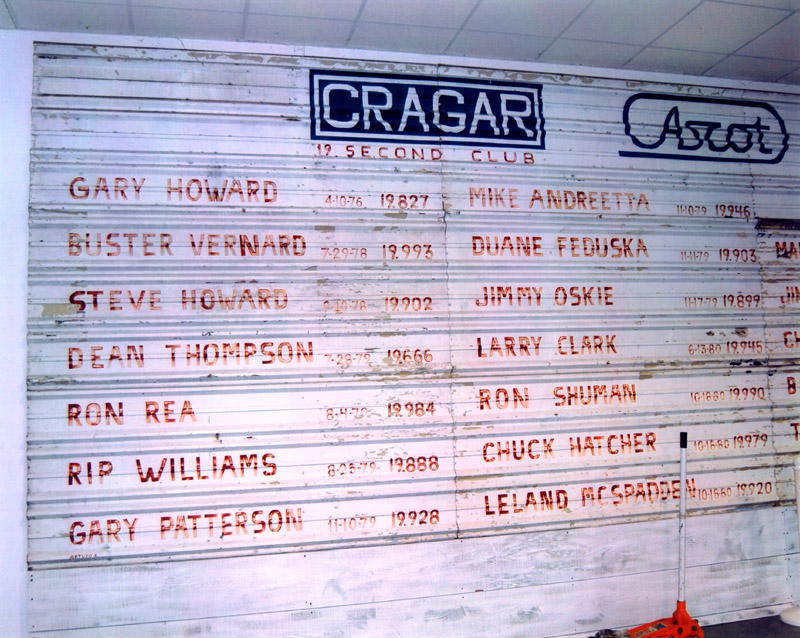 CRAGAR
Ascot
19 SECOND CLUB
GARY HOWARD 4-10-76 19.827
BUSTER VERNARD 7-29-78 19.993
STEVE HOWARD 19.902
DEAN THOMPSON 7-28-79 19.666
RON REA 8-4-79 19.984
RIP WILLIAMS 8-25-79 19.888
GARY PATTERSON 11-10-79 19.928
MIKE ANDREETTA 11-10-79 19.946
DUANE FEDUSKA 11-11-79 19.903
JIMMY OSKIE 11-17-79 19.899
LARRY CLARK 6-13-80 19.945
RON SHUMAN 10-18-80 19.990
CHUCK HATCHER 10-18-80 19.979
LELAND MCSPADDEN 10-18-80 19.920